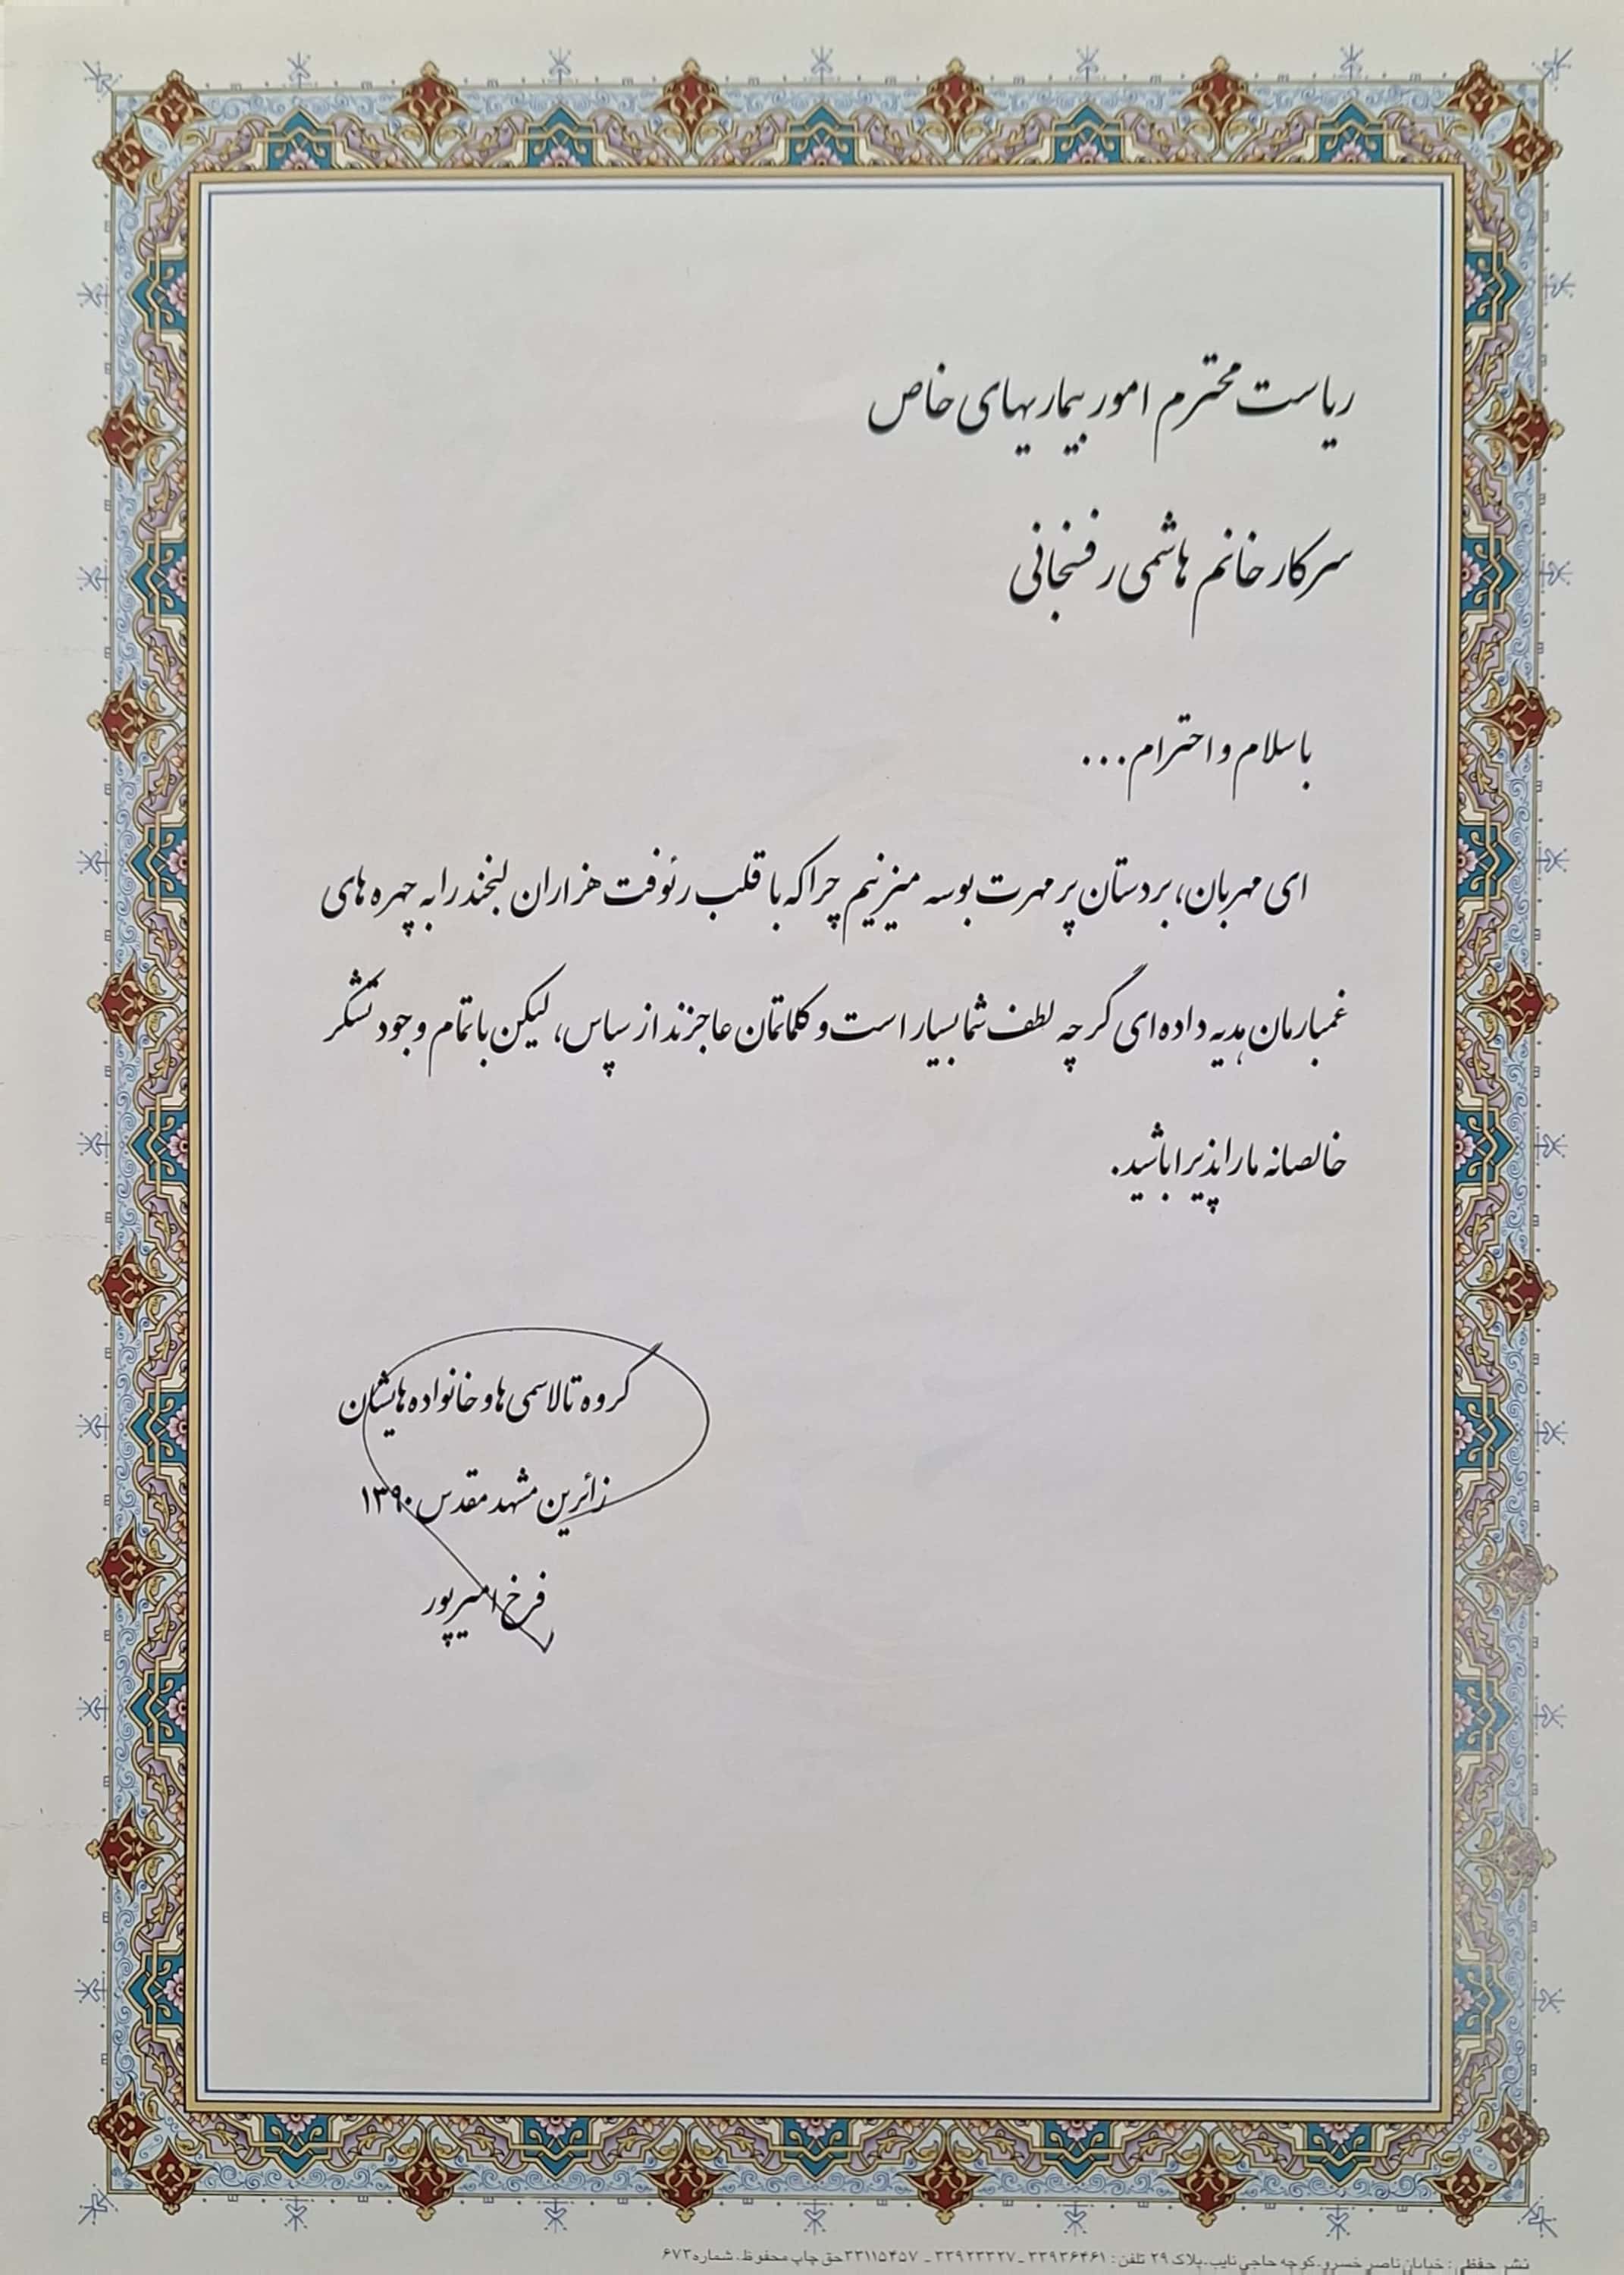 ریاست محترم امور بیماریهای خاص
سرکار خانم هاشمی رفسنجانی
با سلام و احترام...
ای مهربان، بر دستان پر مهرت بوسه میزنیم چرا که با قلب رئوفت هزاران لبخند را به چهره های
غمبارمان هدیه داده ای گرچه لطف شما بسیار است و کلماتمان عاجزند از سپاس، لیکن با تمام وجود تشکر
خالصانه ما را پذیرا باشید.
گروه تالاسمی ها و خانواده هایشان
زائرین مشهد مقدس ۱۳۹۰
فرخ امیرپور
نشر حفظی: خیابان ناصر خسرو، کوچه حاجی نایب، پلاک ۲۹ تلفن: ۳۳۹۳۶۴۶۱ - ۳۳۹۲۳۳۲۷ - ۳۳۱۱۵۴۵۷ حق چاپ محفوظ، شماره ۶۷۳